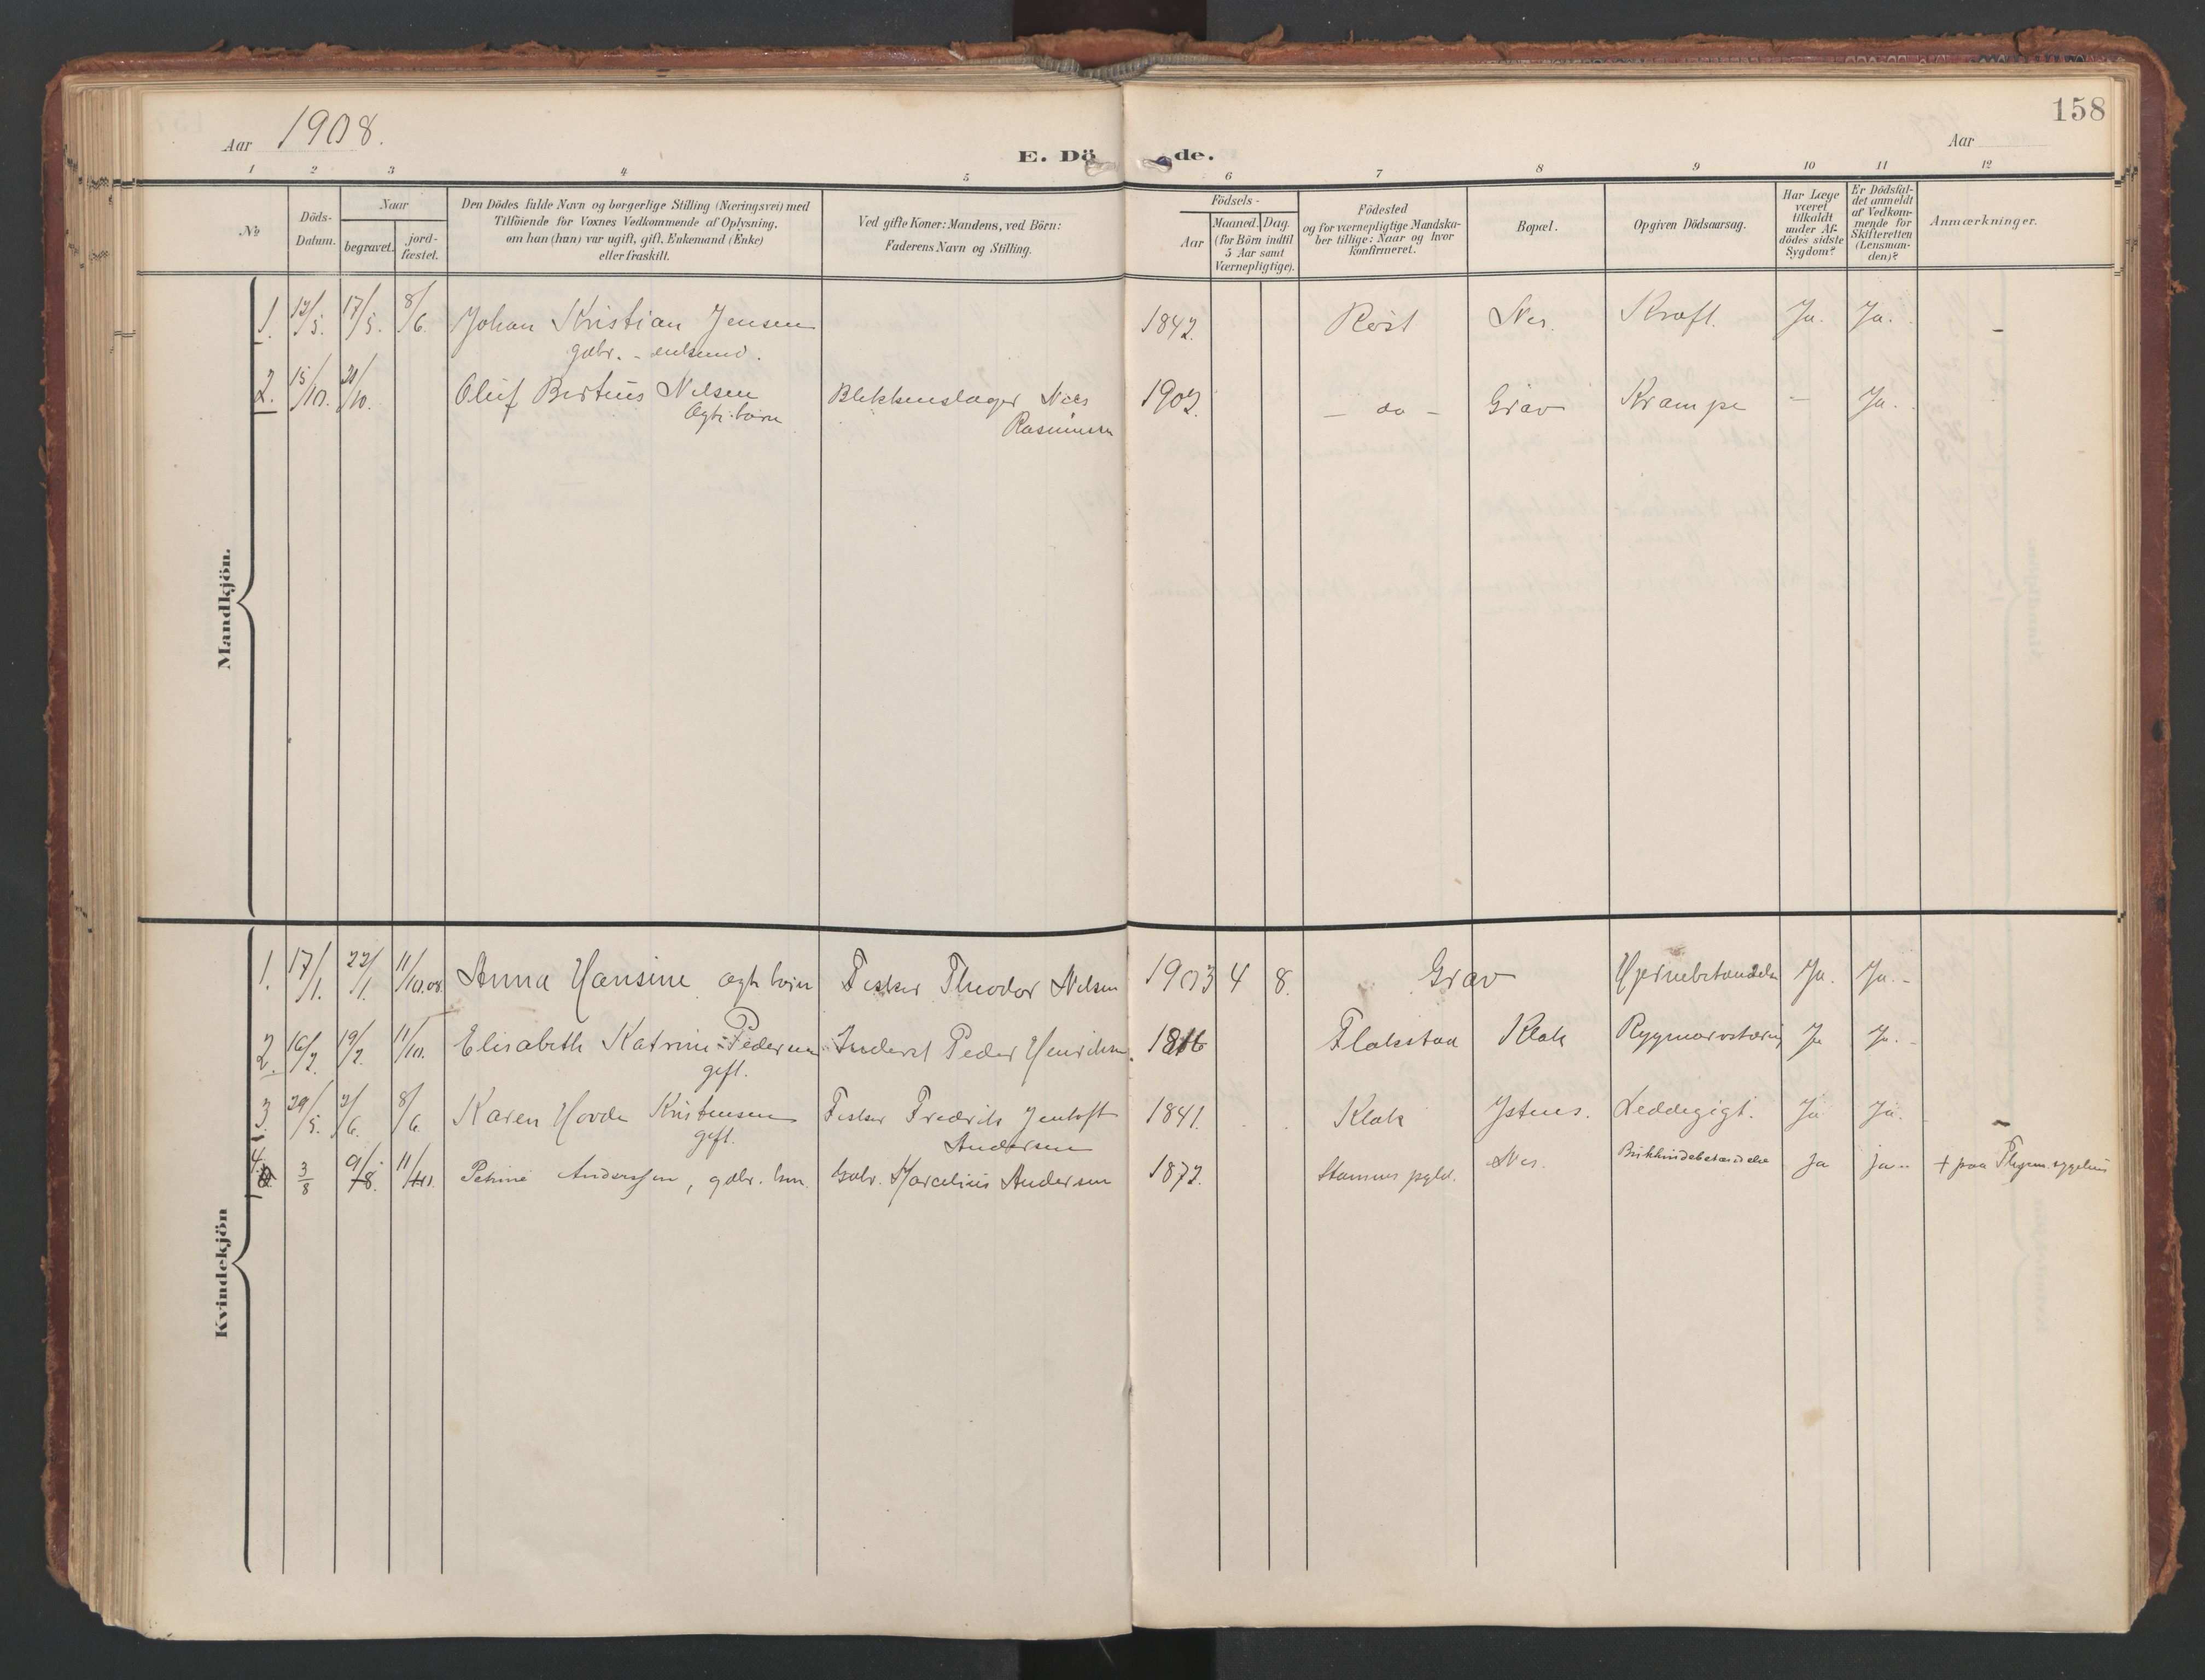 158
Aar 1908.
E. Dö de.
Aar
1 2 3 4 5 6 7 8 9 10 11 12
№
Döds-
Datum.
Naar
begravet.
jord-
fæstet.
Den Dödes fulde Navn og borgerlige Stilling (Næringsvei) med
Tilföiende for Voxnes Vedkommende af Oplysning,
om han (hun) var ugift, gift, Enkemand (Enke)
eller fraskilt.
Ved gifte Koner: Mandens, ved Börn:
Faderens Navn og Stilling.
Födsels-
Aar
Maaned. Dag.
(for Börn indtil
5 Aar samt
Værnepligtige).
Födested
og for værnepligtige Mandska-
ber tillige: Naar og hvor
konfirmeret.
Bopæl.
Opgiven Dödsaarsag.
Har Læge
været
tilkaldt
under Af-
dödes sidste
Sygdom?
Er Dödsfal-
det anmeldt
af Vedkom-
mende for
Skifteretten
(Lensman-
den)?
Anmærkninger.
Mandkjön.
1. 12/5. 17/5. 8/6. Johan Kristian Jensen 1842. Røst Nes. Kræft. Ja. Ja. –
gdbr. - enkem.
2. 15/10. 20/10. Oluf Bertius Nilsen Blikkenslager Nils 1902. – do – Grav Krampe – Ja.
Ægte barn Rasmussen
Kvindekjön
1. 17/1. 22/1. 11/10.08. Anna Hansine ægte barn Fisker Theodor Nilsen 1903 4 8. Grav Hjernebetændelse Ja. Ja. -
2. 16/2. 19/2. 11/10. Elisabeth Katrine Pedersen Inderst Peder Henriksen. Flakstad Klak Rygmarvstæring Ja Ja. -
gift.
3. 29/5. 2/6. 8/6. Karen Hovda Kristensen Fisker Fredrik Jentoft 1841. Klak Ystnes. Leddegigt. Ja Ja. –
gift. Andersen
4. 3/8 9/8. 11/10. Petrine Anderssen, gdbr. kon. Gdbr. Marcelius Andersen 1872. Stamnes pgld. Nes. Brikhindebetændelse ja ja - + paa sygehus